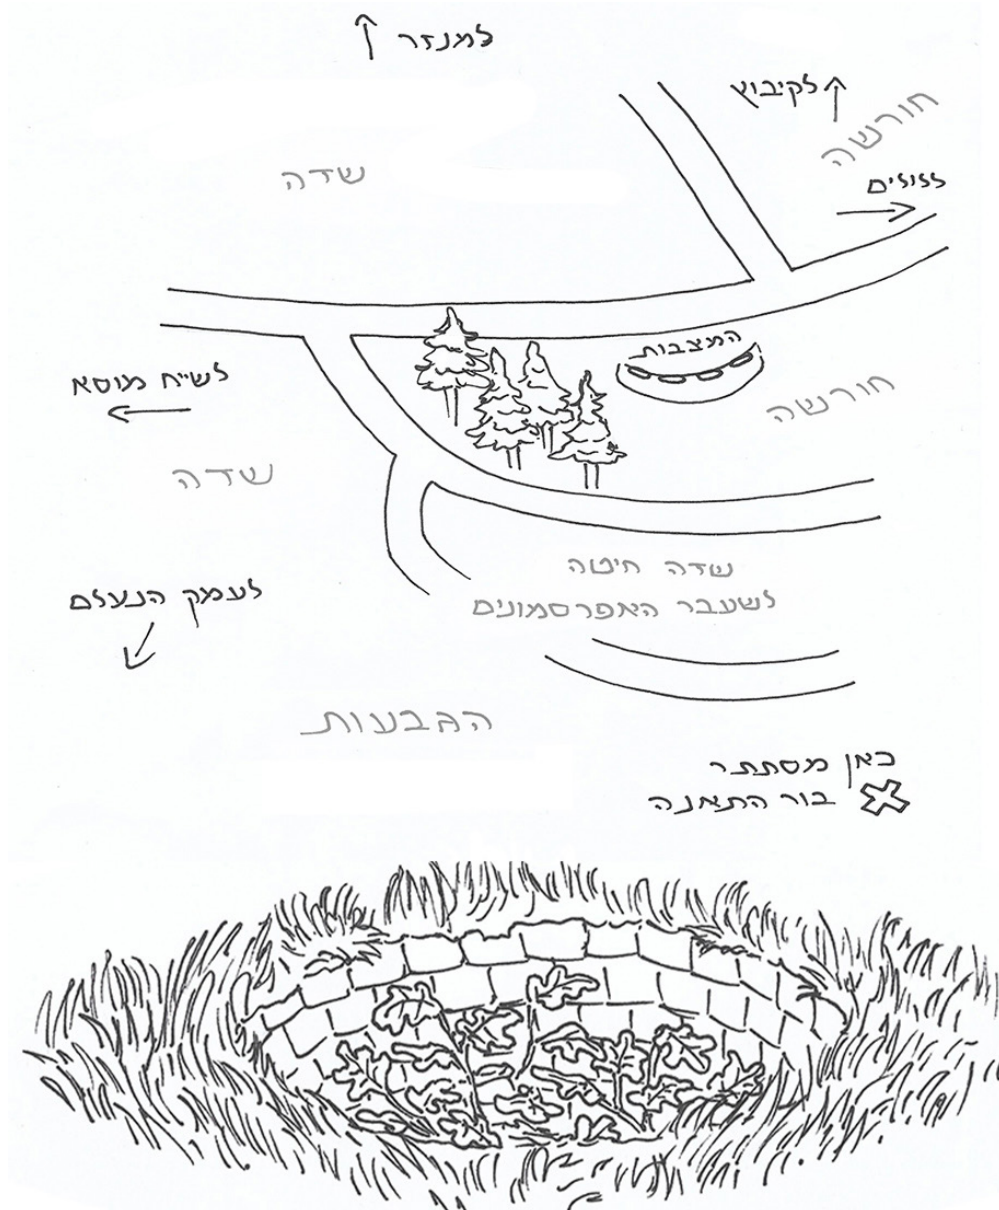 למנזר
לקיבוץ
חורשה
שדה
לזוזים
המצבות
לשיח מוסא
חורשה
שדה
שדה חיטה
לשעבר האפרסמונים
לעמק הנעלם
הגבעות
כאן מסתתר
בור התאנה